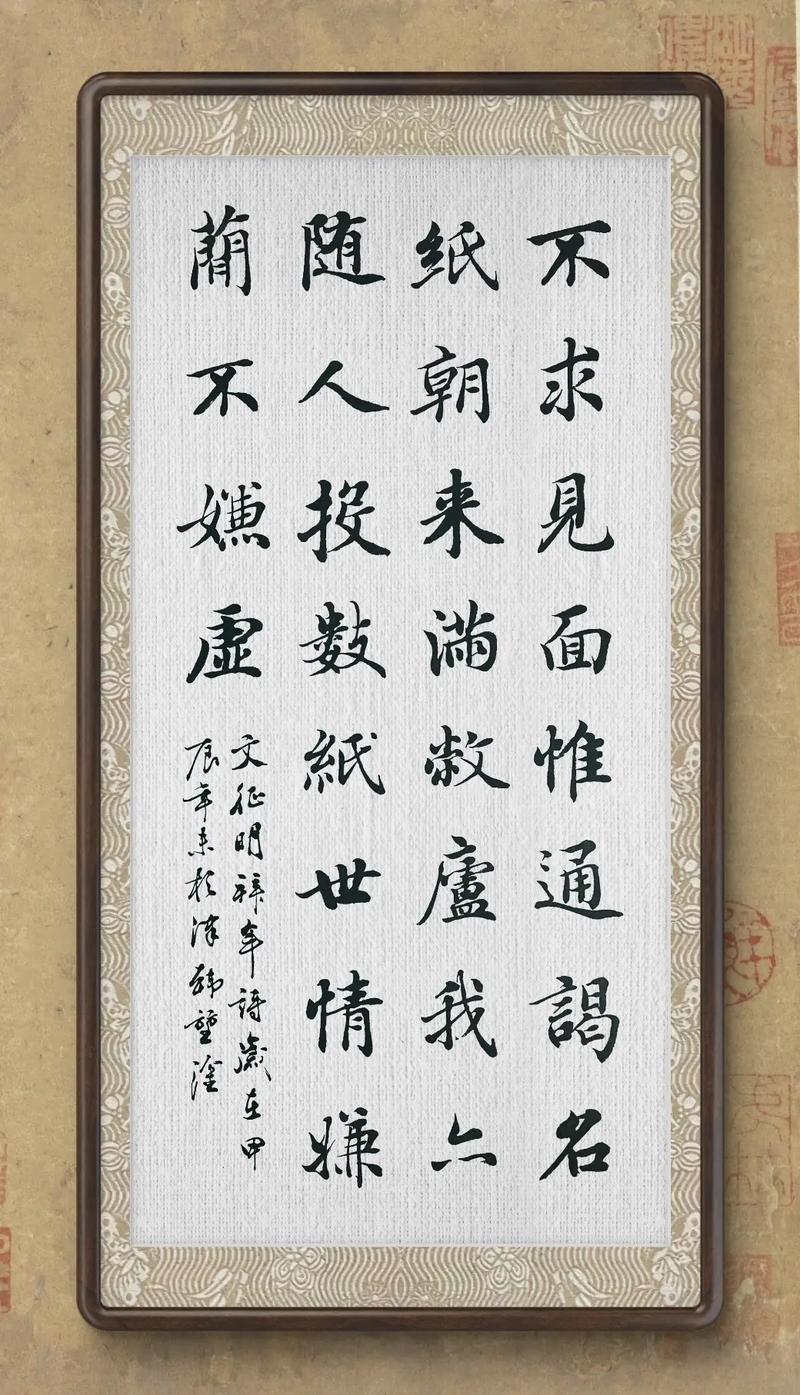 不求見面惟通謁名
紙朝来滿敝廬我亦
随人投數紙世情嫌
簡不嫌虚
文征明拜年詩歲在甲
辰年末於津韩堃